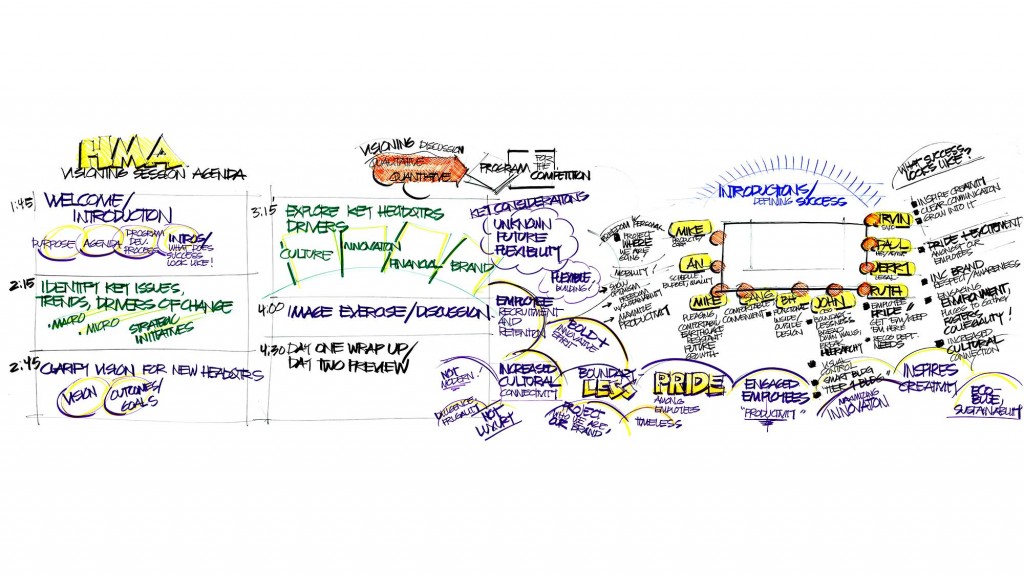 HMA
VISIONING SESSION AGENDA
1:45
WELCOME/
INTRODUCTION
PURPOSE
AGENDA
PROGRAM
DEV.
PROCESS
INTROS/
WHAT DOES
SUCCESS
LOOK LIKE!
2:15
IDENTIFY KEY ISSUES,
TRENDS, DRIVERS OF CHANGE
MACRO
MICRO
STRATEGIC
INITIATIVES
2:45
CLARIFY VISION FOR NEW HEADQTRS
VISION
OUTCOMES/
GOALS
VISIONING DISCUSSION
QUALITATIVE
QUANTITATIVE
PROGRAM
FOR
THE
COMPETITION
3:15
EXPLORE KEY HEADQTRS
DRIVERS
CULTURE
INNOVATION
FINANCIAL
BRAND
4:00
IMAGE EXERCISE/DISCUSSION
4:30
DAY ONE WRAP UP/
DAY TWO PREVIEW
KEY CONSIDERATIONS
UNKNOWN
FUTURE
FLEXIBILITY
FLEXIBLE
BUILDING!
EMPLOYEE
RECRUITMENT
AND
RETENTION
BOLD +
INNOVATIVE
SPIRIT
NOT
MODERN
INCREASED
CULTURAL
CONNECTIVITY
BOUNDARY
LESS
PRIDE
AMONG
EMPLOYEES
ENGAGED
EMPLOYEES
"PRODUCTIVITY"
MAXIMIZING
INNOVATION
INSPIRES
CREATIVITY
ECO
BLUE,
SUSTAINABILITY
FRUGALITY
NOT
LUXURY
PROJECT
WHO WE ARE,
OUR BRAND
TIMELESS
INTRODUCTIONS/
DEFINING SUCCESS
PROJECT
WHERE
WE ARE
GOING!
MOBILITY/
SHOW
OPTIMISM
FREEDOM
SUSTAINABILITY
MAXIMIZE
PRODUCTIVITY
MIKE
PRODUCTS/
CORP
AN
SCHEDULE/
BUDGET/QUALITY
MIKE
PLEASING,
COMFORTABLE,
EARTHQUAKE
RESISTANT
FUTURE
GROWTH
COMFORTABLE
CONVENIENT
BH
FUNCTIONAL
INSIDE/
OUTSIDE
DESIGN
JOHN
CEO
BOUNDARY-
LESSNESS
BREAK
DOWN WALLS/
BREAK
HIERARCHY
VISUAL
CONTROL
SMART BLDG
IRVIN
PAUL
JERRY
LEGAL
RUTH
EMPLOYEE
PRIDE/
GET 'EM/KEEP
'EM HERE
RECOG DEPT.
NEEDS
WHAT SUCCESS
LOOKS LIKE?
INSPIRE CREATIVITY
CLEAR COMMUNICATION
GROW INTO IT
PRIDE + EXCITEMENT
AMONGST OUR
EMPLOYEES
INC BRAND
RESPECT/AWARENESS
ENGAGING
ENVIRONMENT,
PLACES TO GATHER
FOSTERS
COLLEGIALITY!
INCREASED
CULTURAL
CONNECTION